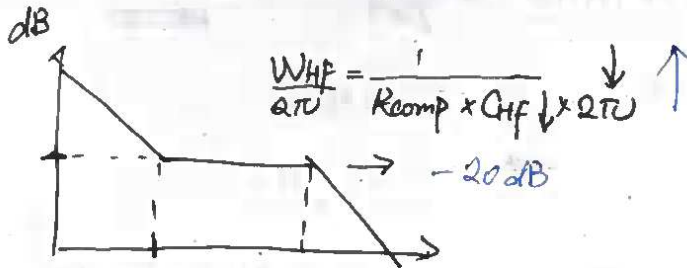 dB
W_HF / 2π = 1 / Rcomp × C_HF ↓ × 2π ↓ ↑
→ -20 dB